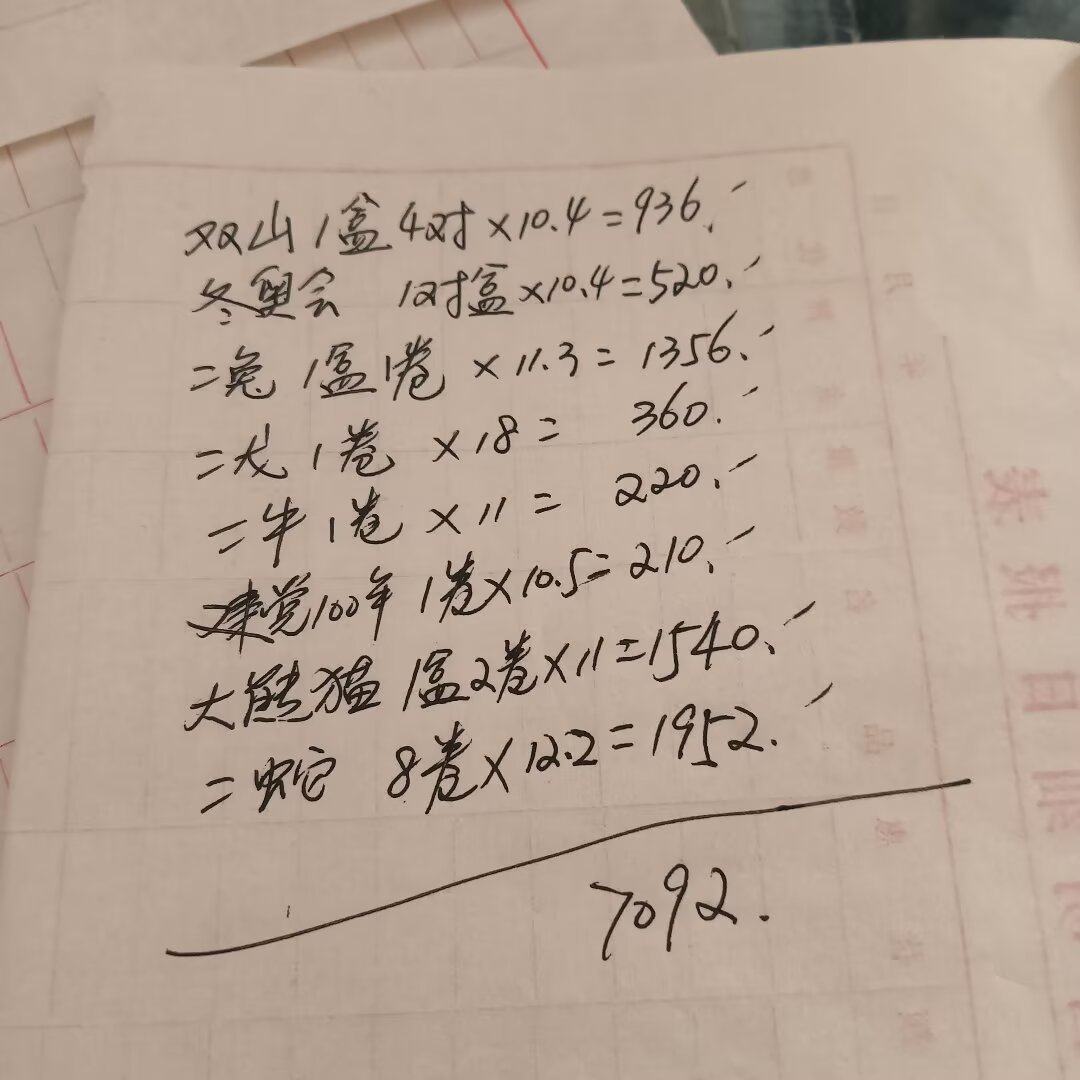 双山 1盒4对×10.4=936.
冬奥会 1对盒×10.4=520.
二兔 1盒1卷 ×11.3=1356.
二龙 1卷 ×18= 360.
二牛 1卷 ×11= 220.
建党100年 1卷×10.5=210.
大熊猫 1盒2卷×11=1540.
二蛇 8卷×12.2=1952.
7092.